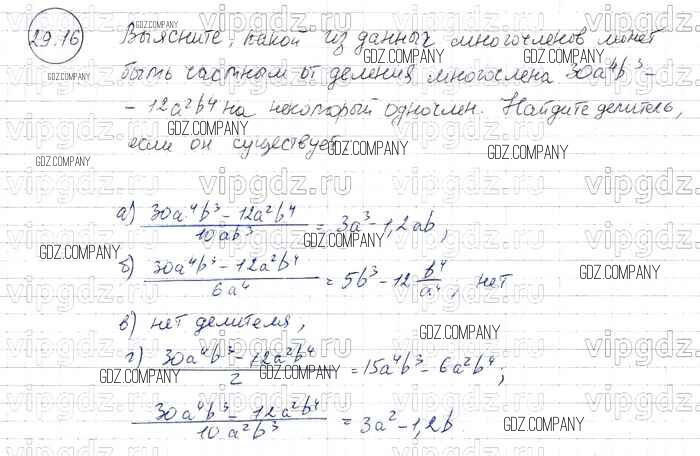 29.16 Выясните, какой из данных многочленов может
быть частным от деления многочлена 30a⁴b³ –
– 12a²b⁴ на некоторый одночлен. Найдите делитель,
если он существует.
а) (30a⁴b³ – 12a²b⁴)/(10ab³) = 3a³ – 1,2ab,
б) (30a⁴b³ – 12a²b⁴)/(6a⁴) = 5b³ – 12 b⁴/a⁴, нет
в) нет делителя,
г) (30a⁴b³ – 12a²b⁴)/2 = 15a⁴b³ – 6a²b⁴;
(30a⁴b³ – 12a²b⁴)/(10a²b³) = 3a² – 1,2b.
GDZ.COMPANY
vipgdz.ru